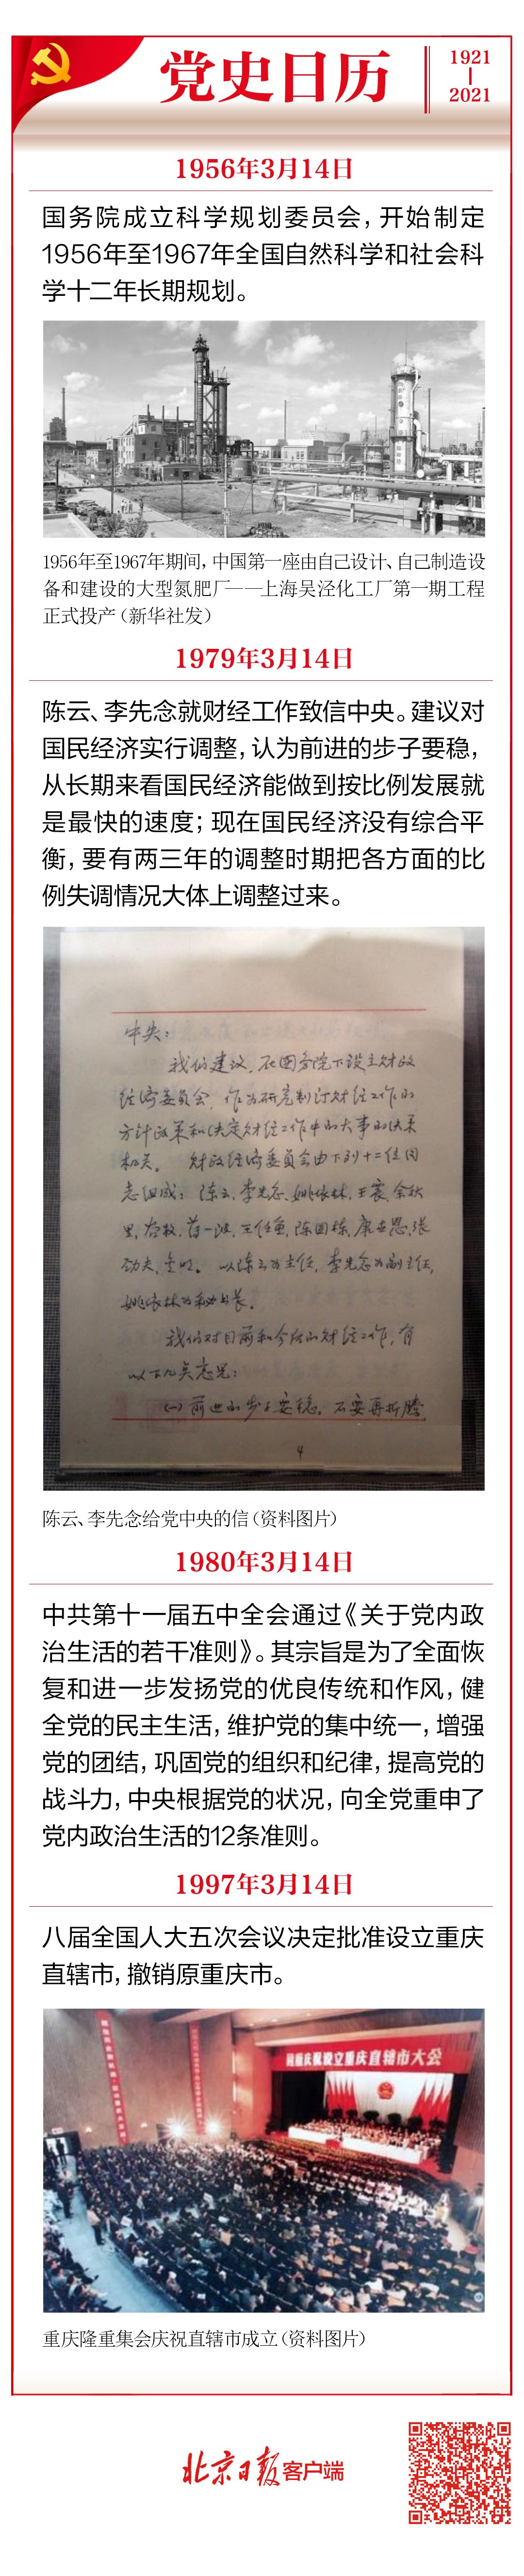 党史日历
1921
2021
1956年3月14日
国务院成立科学规划委员会，开始制定
1956年至1967年全国自然科学和社会科
学十二年长期规划。
1956年至1967年期间，中国第一座由自己设计、自己制造设
备和建设的大型氮肥厂——上海吴泾化工厂第一期工程
正式投产（新华社发）
1979年3月14日
陈云、李先念就财经工作致信中央。建议对
国民经济实行调整，认为前进的步子要稳，
从长期来看国民经济能做到按比例发展就
是最快的速度；现在国民经济没有综合平
衡，要有两三年的调整时期把各方面的比
例失调情况大体上调整过来。
中央：
我们建议，在国务院下设立财政
经济委员会，作为研究制订财经工作的
方针政策和决定财经工作中的大事的决策
机关。财政经济委员会由下列十二位同
志组成：陈云，李先念，姚依林，王震，余秋
里，谷牧，薄一波，王任重，陈国栋，康世恩，张
劲夫，金明。以陈云为主任，李先念为副主任，
姚依林为秘书长。
我们对目前和今后的财经工作，有
以下几点意见：
（一）前进的步子要稳。不要再折腾，
4
陈云、李先念给党中央的信（资料图片）
1980年3月14日
中共第十一届五中全会通过《关于党内政
治生活的若干准则》。其宗旨是为了全面恢
复和进一步发扬党的优良传统和作风，健
全党的民主生活，维护党的集中统一，增强
党的团结，巩固党的组织和纪律，提高党的
战斗力，中央根据党的状况，向全党重申了
党内政治生活的12条准则。
1997年3月14日
八届全国人大五次会议决定批准设立重庆
直辖市，撤销原重庆市。
庆祝设立重庆直辖市大会
重庆隆重集会庆祝直辖市成立（资料图片）
北京日报客户端